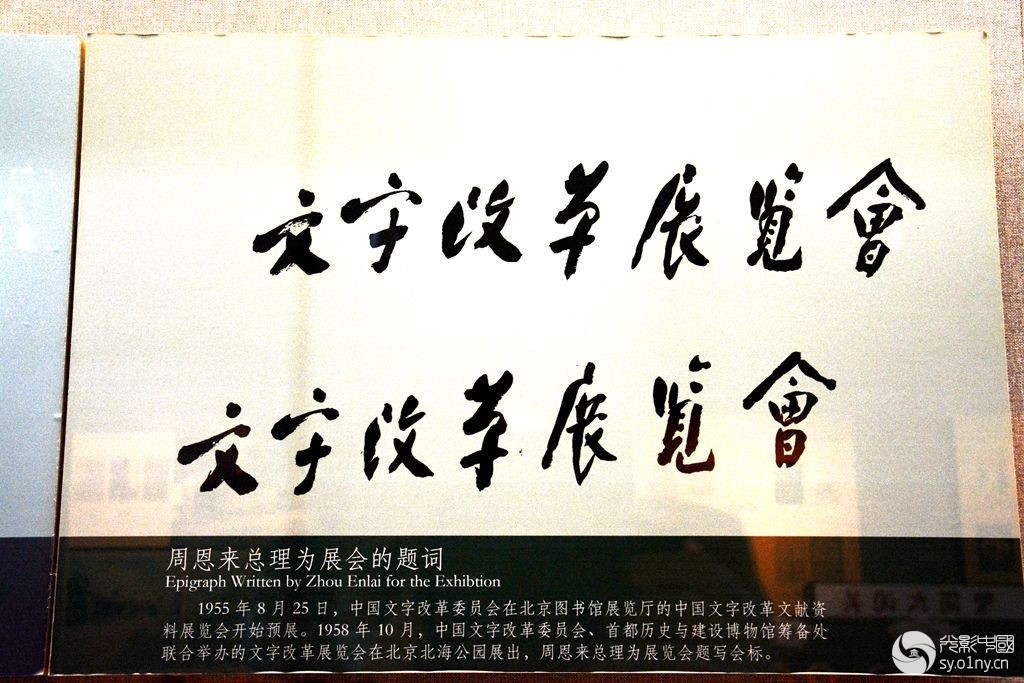 文字改革展览會
文字改革展览會
周恩来总理为展会的题词
Epigraph Written by Zhou Enlai for the Exhibtion
1955 年 8 月 25 日，中国文字改革委员会在北京图书馆展览厅的中国文字改革文献资
料展览会开始预展。1958 年 10 月，中国文字改革委员会、首都历史与建设博物馆筹备处
联合举办的文字改革展览会在北京北海公园展出，周恩来总理为展览会题写会标。
光影中國
sy.o1ny.cn